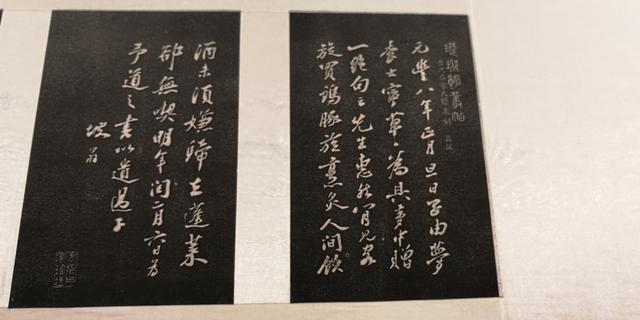 元豐八年正月旦日子由夢
李士寧草〻為具夢中贈
一絕句云先生惠然肯見客
旋買鷄豚旋烹炙人間飲
酒未須嫌歸去蓬萊
却無喫明年閏二月六日為
予道之書以遺過子
坡翁